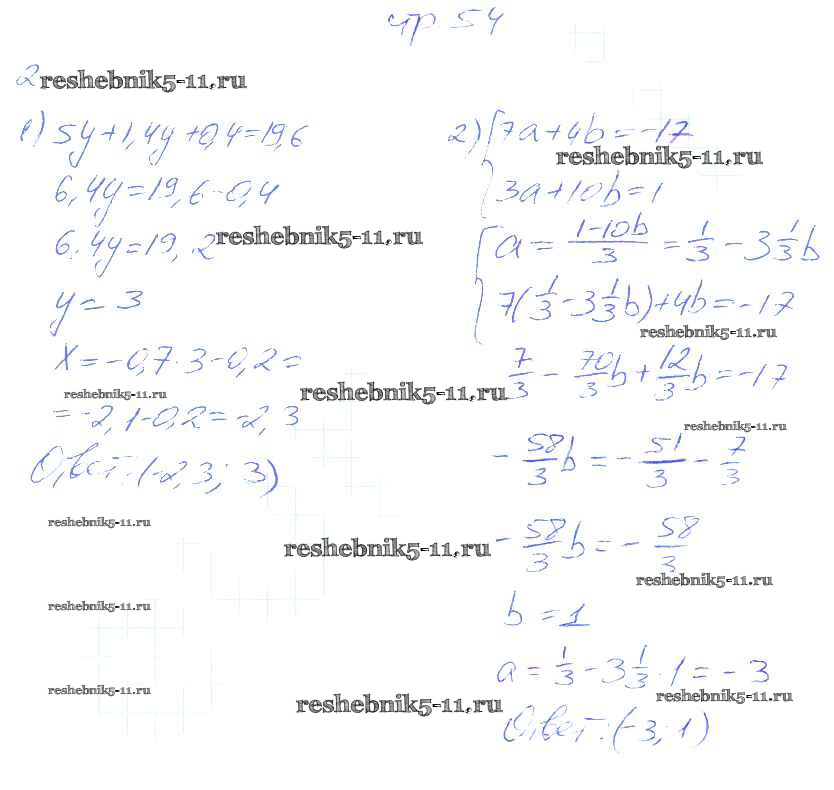 стр 54
2
reshebnik5-11.ru
1) 5y+1,4y+0,4=19,6
6,4y=19,6-0,4
6,4y=19,2
reshebnik5-11.ru
y=3
x=-0,7·3-0,2=
reshebnik5-11.ru
=-2,1-0,2=-2,3
Ответ:(-2,3; 3)
reshebnik5-11.ru
reshebnik5-11.ru
reshebnik5-11.ru
reshebnik5-11.ru
reshebnik5-11.ru
reshebnik5-11.ru
2) {7a+4b=-17
reshebnik5-11.ru
{3a+10b=1
{a=(1-10b)/3=1/3-3 1/3b
{7(1/3-3 1/3b)+4b=-17
reshebnik5-11.ru
7/3-70/3b+12/3b=-17
reshebnik5-11.ru
-58/3b=-51/3-7/3
-58/3b=-58/3
reshebnik5-11.ru
b=1
a=1/3-3 1/3·1=-3
reshebnik5-11.ru
Ответ:(-3;1)